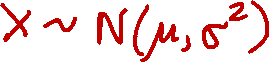 X ~ N(μ, σ²)